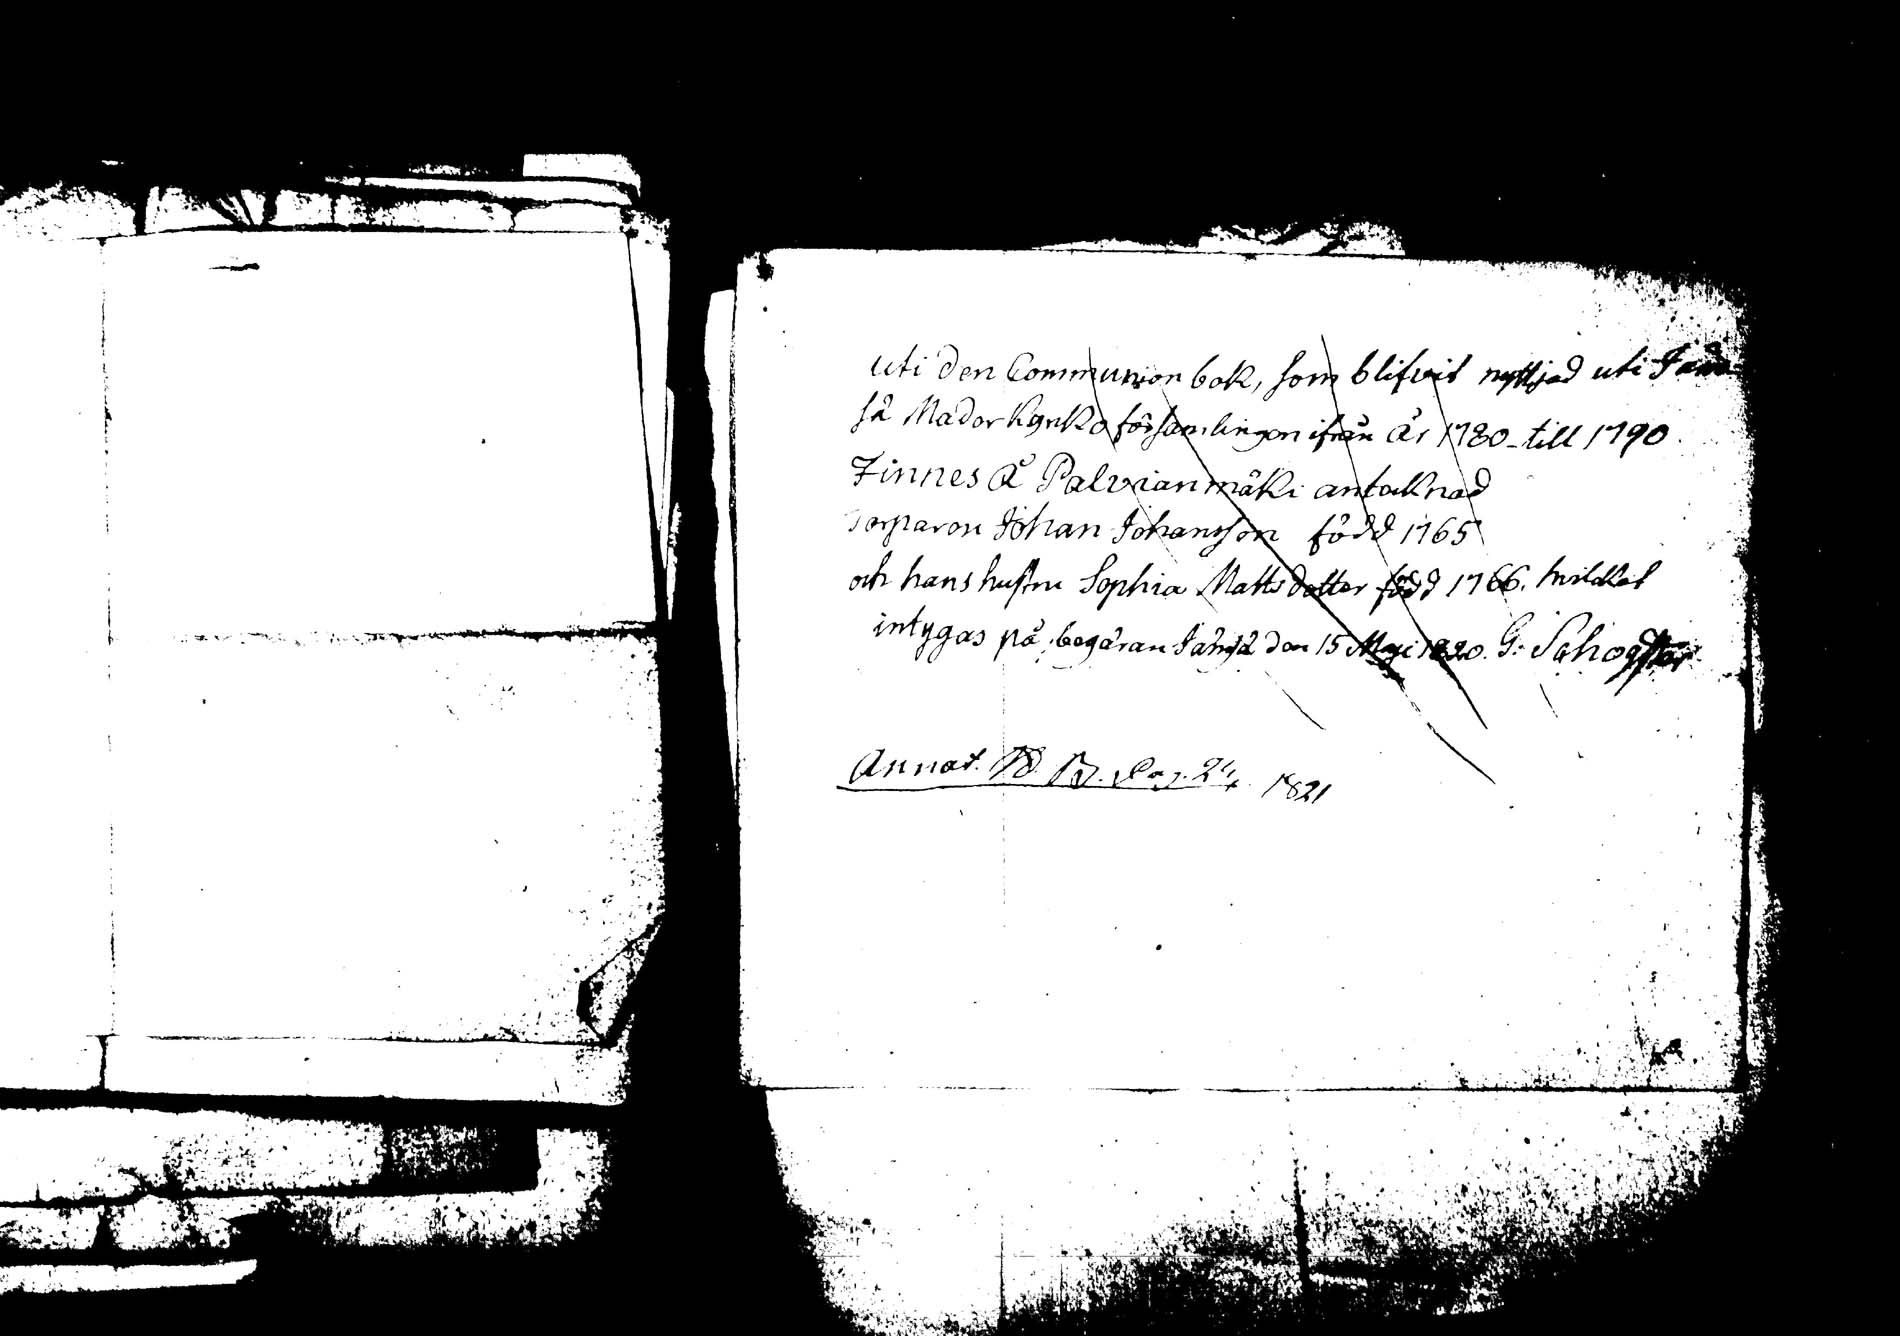 uti den Communion bok, som blifvit nyttjad uti Jäms
sä Moder kyrko församlingen ifrån år 1780 - till 1790
Finnes å Palvianmäki antecknad
Torparen Johan Johansson född 1765
och hans hustru Sophia Matts dotter född 1766. hvilket
intygas på begäran Jämsä den 15 Maji 1820. G:
Annot. B. Pag. 24. 1821